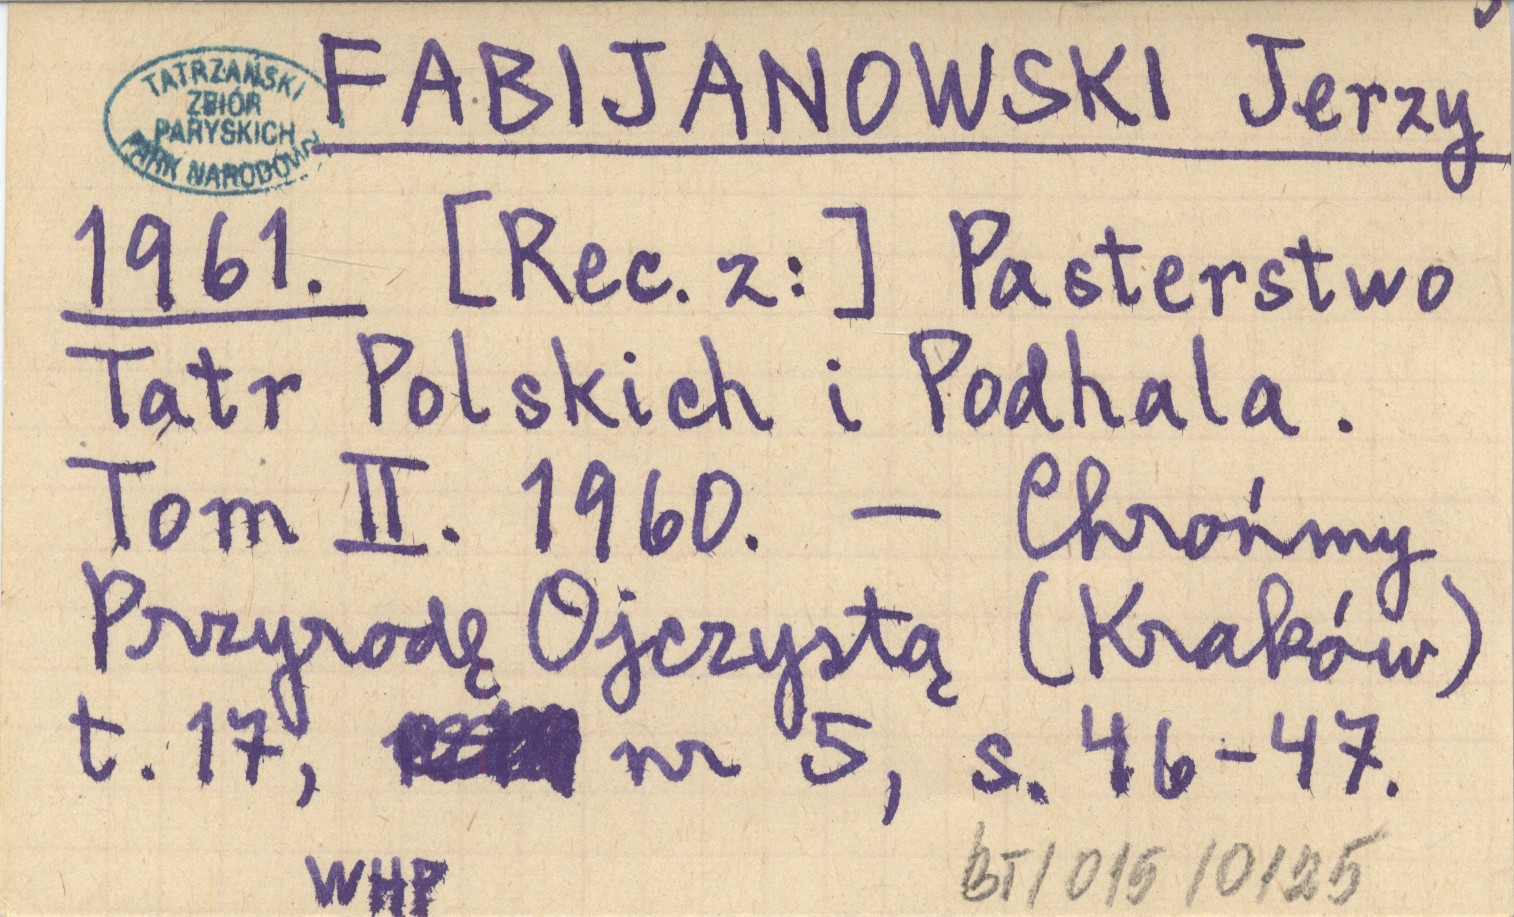 TATRZAŃSKI
ZBIÓR
PARYSKICH
PARK NARODOWY
FABIJANOWSKI Jerzy
1961. [Rec. z:] Pasterstwo
Tatr Polskich i Podhala.
Tom II. 1960. – Chrońmy
Przyrodę Ojczystą (Kraków)
t. 17, nr 5, s. 46-47.
WHP
BT/015/0125